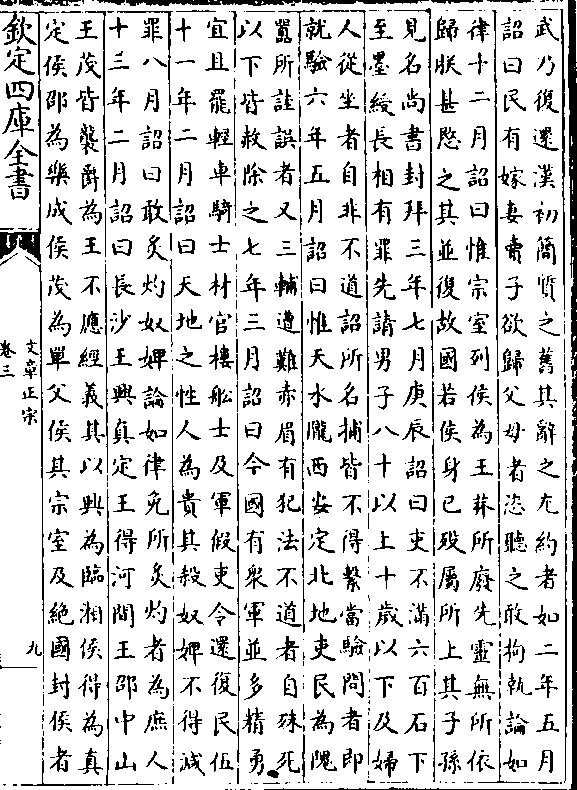 武乃復還漢初簡質之舊其辭之尤約者如二年五月
詔曰民有嫁妻賣子欲歸父母者恣聽之敢拘執論如
律十二月詔曰惟宗室列侯為王莽所廢先靈無所依
歸朕甚愍之其並復故國若侯身已殁屬所上其子孫
見名尚書封拜三年七月庚辰詔曰吏不滿六百石下
至墨綬長相有罪先請男子八十以上十歳以下及婦
人從坐者自非不道詔所名捕皆不得繫當驗問者即
就驗六年五月詔曰惟天水隴西安定北地吏民為隗
囂所詿誤者又三輔遭難赤眉有犯法不道者自殊死
以下皆赦除之七年三月詔曰今國有衆軍並多精勇
宜且罷輕車騎士材官樓船士及軍假吏令還復民伍
十一年二月詔曰天地之性人為貴其殺奴婢不得減
罪八月詔曰敢炙灼奴婢論如律免所炙灼者為庶人
十三年二月詔曰長沙王興真定王得河間王邵中山
王茂皆襲爵為王不應經義其以興為臨湘侯得為真
定侯邵為樂成侯茂為單父侯其宗室及絶國封侯者
欽定四庫全書
文章正宗
卷三
九